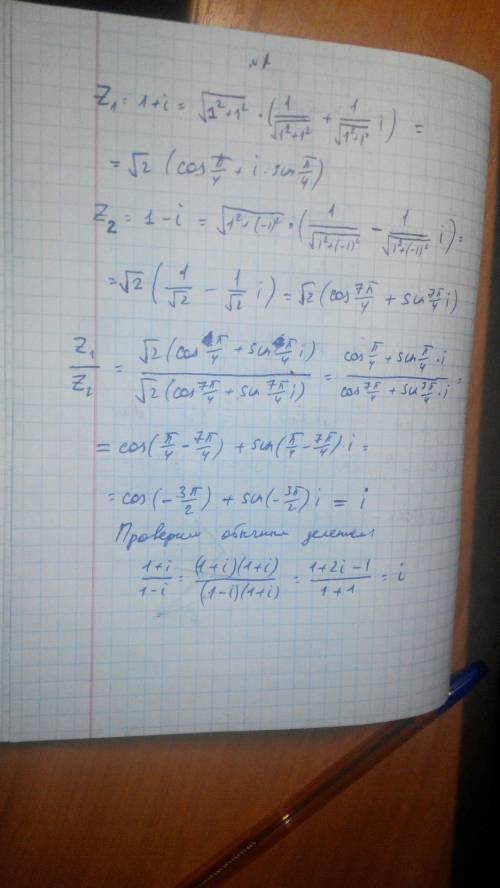 №1
Z₁ = 1+i = √(1²+1²) · (1/√(1²+1²) + 1/√(1²+1²) i) =
= √2 (cos π/4 + i · sin π/4)
Z₂ = 1-i = √(1²+(-1)²) · (1/√(1²+(-1)²) - 1/√(1²+(-1)²) i) =
= √2 (1/√2 - 1/√2 i) = √2 (cos 7π/4 + sin 7π/4 i)
Z₁/Z₂ = √2 (cos π/4 + sin π/4 i) / √2 (cos 7π/4 + sin 7π/4 i) = (cos π/4 + sin π/4 · i) / (cos 7π/4 + sin 7π/4 · i) =
= cos(π/4 - 7π/4) + sin(π/4 - 7π/4) · i =
= cos(-3π/2) + sin(-3π/2) i = i
Проверим обычным делением
(1+i)/(1-i) = (1+i)(1+i)/(1-i)(1+i) = (1+2i-1)/(1+1) = i